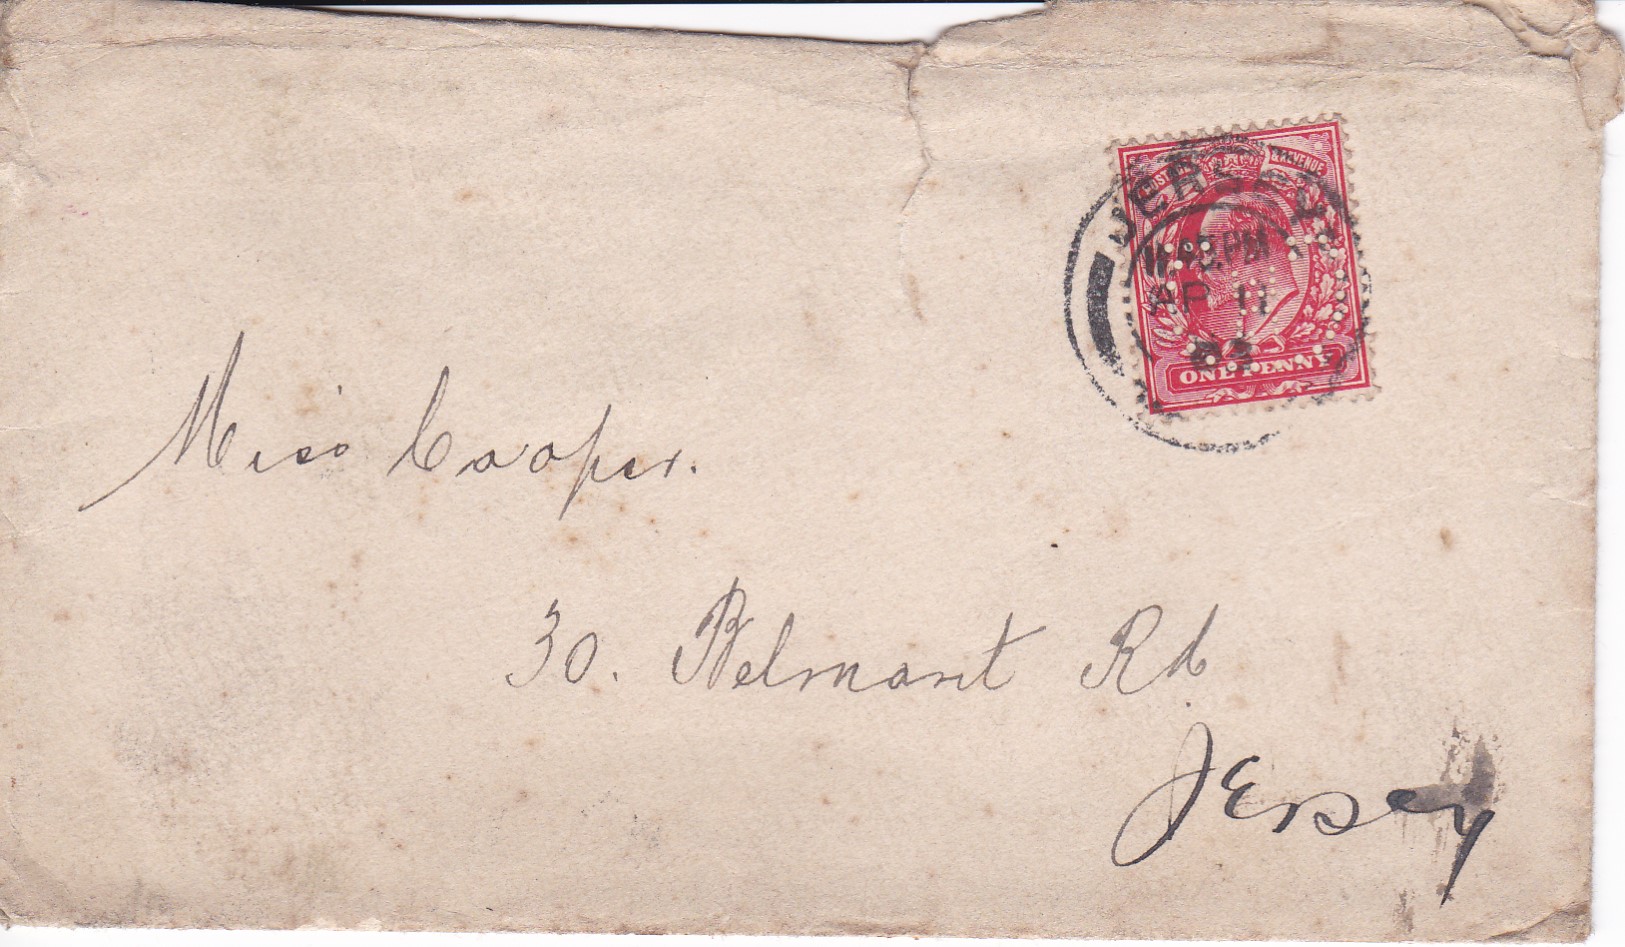 POSTAGE & REVENUE
JERSEY
PM
AP 11
ONE PENNY
Miss Cooper.
30. Belmont Rd
Jersey